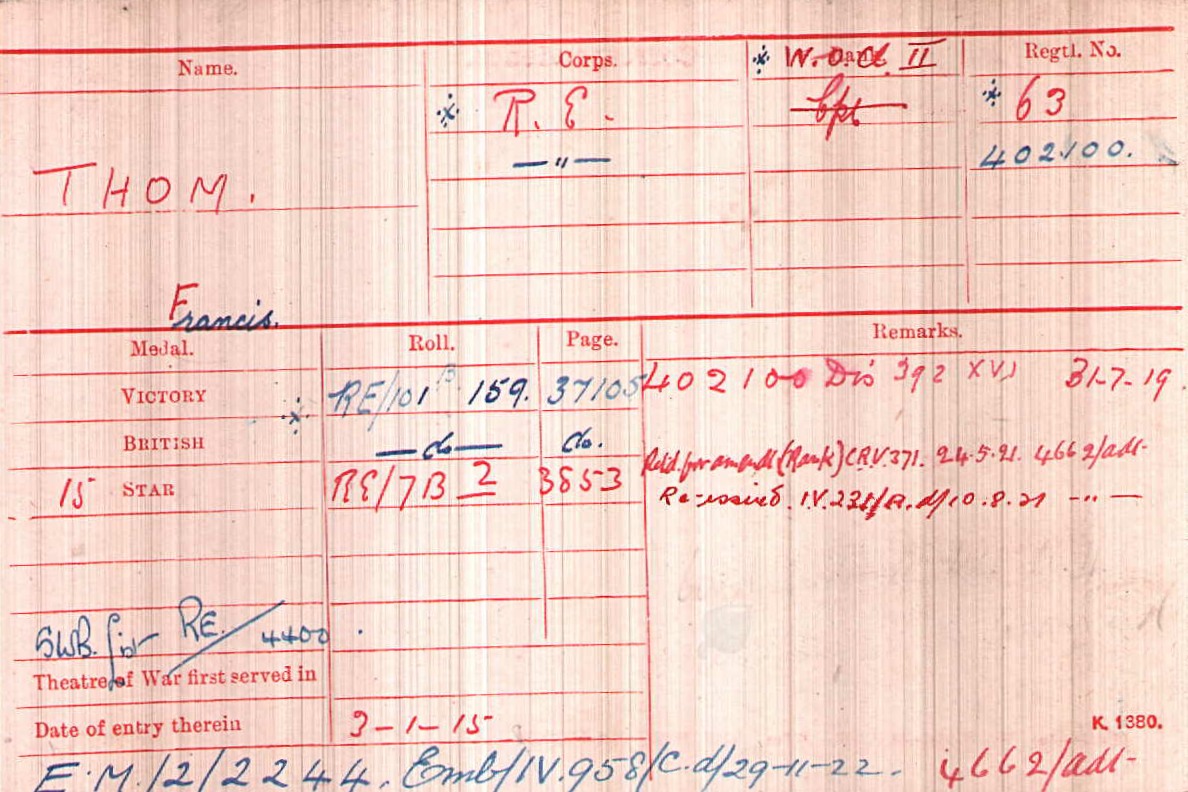 Name. Corps. * W.O.Cl. II Regtl. No.
* R.E. Cpl * 63
THOM. — " — 402100.
Francis.
Medal. Roll. Page. Remarks.
VICTORY RE/101 B 159. 37105 402100 Dis 392 XVI 31-7-19.
* BRITISH — do — do.
Retd. for amendt (Rank) CRV.371. 24.5.21. 4662/adt-
15 STAR RE/7B 2 3853
Re-issued. IV.231/A.d/10.8.21 — " —
SWB. list RE/4400.
Theatre of War first served in
Date of entry therein 3-1-15
K. 1380.
E.M./2/2244. Emb/IV.958/C.d/29-11-22. 4662/adt-